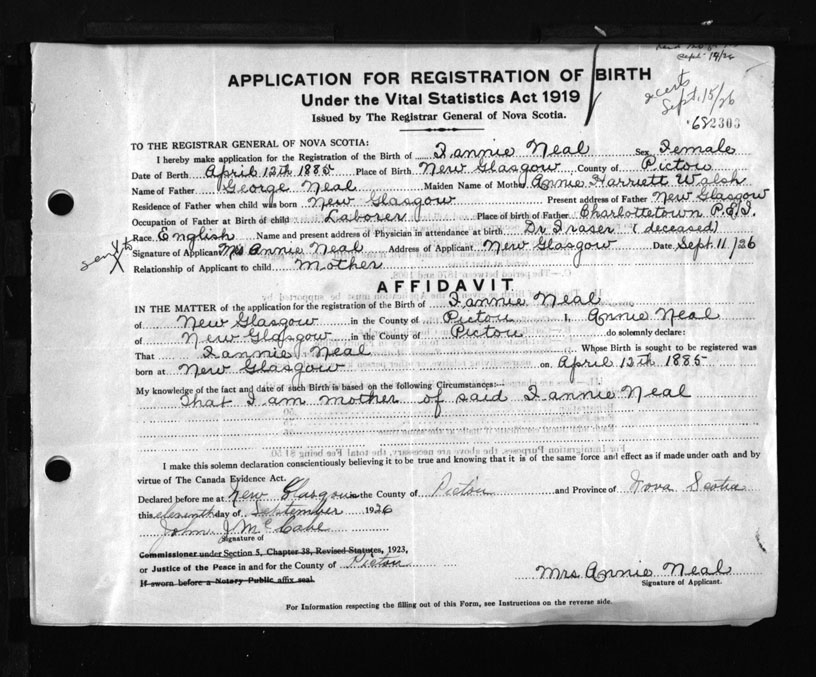 Sept 14/26
APPLICATION FOR REGISTRATION OF BIRTH
Under the Vital Statistics Act 1919
2 certs
Sept. 15/26
Issued by The Registrar General of Nova Scotia.
682303
TO THE REGISTRAR GENERAL OF NOVA SCOTIA:
I hereby make application for the Registration of the Birth of Fannie Neal Sex Female
Date of Birth April 12th 1885 Place of Birth New Glasgow County of Pictou
Name of Father George Neal Maiden Name of Mother Annie Harriett Walsh
Residence of Father when child was born New Glasgow Present address of Father New Glasgow
Occupation of Father at Birth of child Laborer Place of birth of Father Charlottetown P.E.I.
Race English Name and present address of Physician in attendance at birth Dr Fraser (deceased)
Signature of Applicant Mrs Annie Neal Address of Applicant New Glasgow Date Sept. 11/26
Relationship of Applicant to child Mother
AFFIDAVIT
IN THE MATTER of the application for the registration of the Birth of Fannie Neal
of New Glasgow in the County of Pictou I, Annie Neal
of New Glasgow in the County of Pictou do solemnly declare:
That Fannie Neal Whose Birth is sought to be registered was
born at New Glasgow on April 12th 1885
My knowledge of the fact and date of such Birth is based on the following Circumstances:—
That I am mother of said Fannie Neal
I make this solemn declaration conscientiously believing it to be true and knowing that it is of the same force and effect as if made under oath and by
virtue of The Canada Evidence Act.
Declared before me at New Glasgow the County of Pictou and Province of Nova Scotia
this eleventh day of September 1926
John J McCabe
Signature of
Commissioner under Section 5, Chapter 38, Revised Statutes, 1923,
or Justice of the Peace in and for the County of Pictou
If sworn before a Notary Public affix seal
Mrs. Annie Neal
Signature of Applicant.
For Information respecting the filling out of this Form, see Instructions on the reverse side.